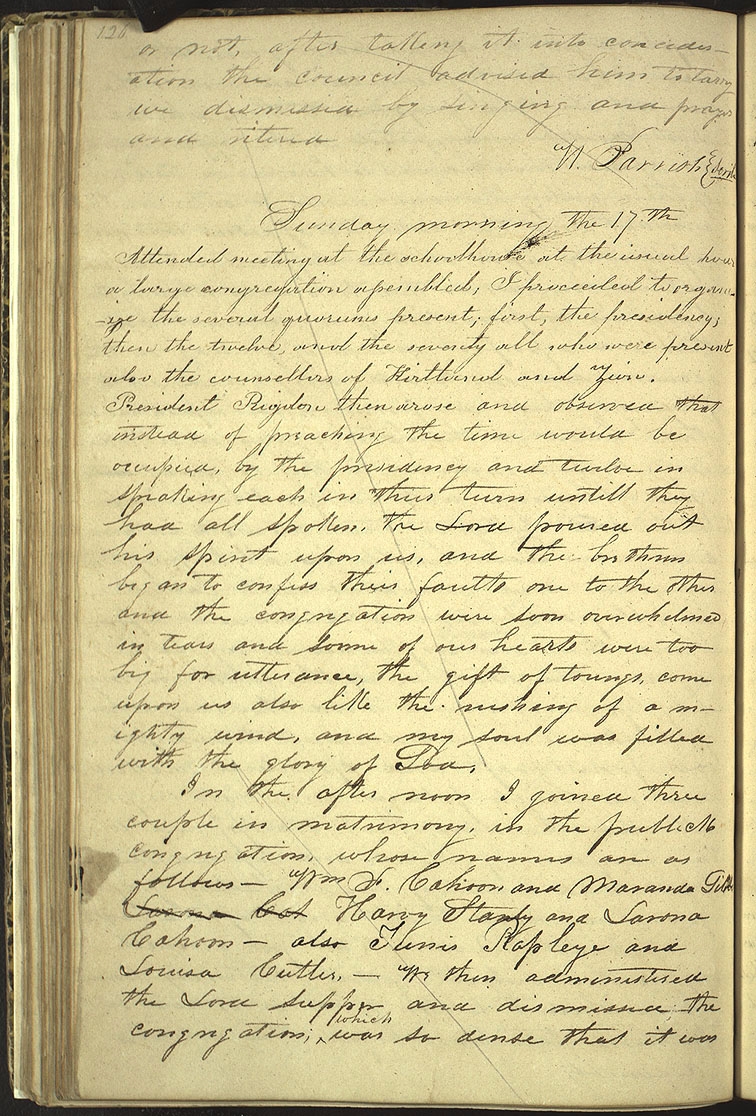 126
or not, after taking it into concider-
ation the council advised him to tarry
we dismissed by singing and prayr
and retired
W. Parrish Scribe
Sunday morning the 17th
Attended meeting at the schoolhouse at the usual hour
a large congregation assembled; I proceeded to organi-
ze the several quorums present; first, the presidency;
then the twelve, and the seventy all who were present
also the counsellors of Kirtland and Zion.
President Rigdon then arose and observed that
instead of preaching the time would be
occupied, by the presidency and twelve in
speaking each in their turn untill they
had all spoken. the Lord poured out
his spirit upon us, and the brethren
began to confess their faults one to the other
and the congregation were soon overwhelmed
in tears and some of our hearts were too
big for utterance, the gift of toungs, come
upon us also like the rushing of a m-
ighty wind, and my soul was filled
with the glory of God.
In the after noon I joined three
couple in matrimony, in the publick
congregation, whose names are as
follows— Wm F. Cahoon and Maranda
Larona Harvy Stanly and Larona
Cahoon— also Tunis Rapleye and
Louisa Cutler,— We then administered
the Lord supper and dismissed the
congregation; which was so dense that it was